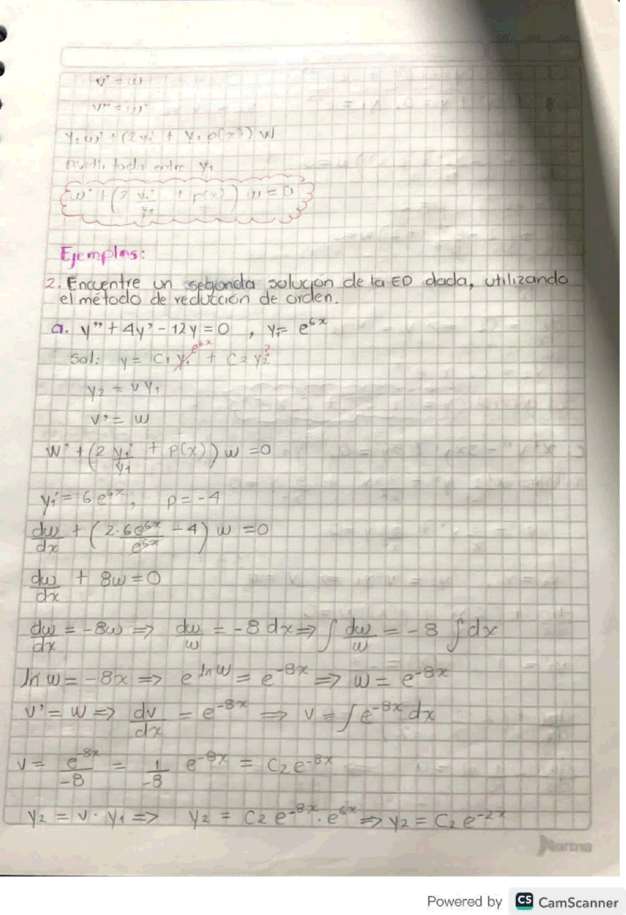 v' = w
v'' = w'
y₁w' + (2y₁' + y₁ p(x)) w
Dividir todo entre y₁
w' + (2 y₁'/y₁ + p(x)) w = 0
Ejemplos:
2. Encuentre un segonda solución de la ED dada, utilizando
el método de reducción de orden.
a. y'' + 4y' - 12y = 0 , y₁ = e^{6x}
Sol: y = C₁ y₁ e^{6x} + C₂ y₂ ?
y₂ = v y₁
v' = w
w' + (2 y₁'/y₁ + p(x)) w = 0
y₁' = 6e^{6x}, p = -4
dw/dx + (2·6e^{6x}/e^{6x} - 4) w = 0
dw/dx + 8w = 0
dw/dx = -8w => dw/w = -8 dx => ∫ dw/w = -8 ∫ dx
ln w = -8x => e^{ln w} = e^{-8x} => w = e^{-8x}
v' = w => dv/dx = e^{-8x} => v = ∫ e^{-8x} dx
v = e^{-8x}/-8 = 1/-8 e^{-8x} = C₂e^{-8x}
y₂ = v · y₁ => y₂ = C₂ e^{-8x} · e^{6x} => y₂ = C₂ e^{-2x}
Norma
Powered by CS CamScanner